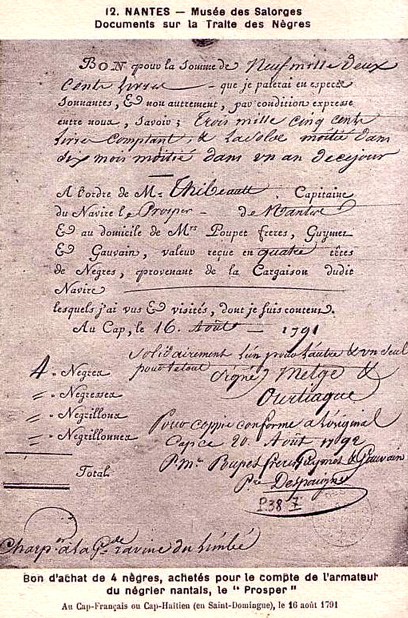 12. NANTES — Musée des Salorges
Documents sur la Traite des Nègres
BON pour la Somme de Neuf mille deux
Cents livres — que je paierai en espèces
Sonnantes, & non autrement, par condition expresse
entre nous, Savoir; Trois mille cinq cents
livres Comptant, & la Solde moitié dans
dix mois moitié dans un an de ce jour
A l'ordre de Mr. Thibeault, Capitaine
du Navire le Prosper — de Nantes
& au domicile de Mrs Poupet frères, Guymet
& Gauvain, valeur reçue en quatre têtes
de Nègres, provenant de la Cargaison dudit
Navire
lesquels j'ai vus & visités, dont je suis content.
Au Cap, le 16. Août — 1791
Solidairement l'un pour l'autre & un seul
pour le tout
Signé, Metge &
Ourtiague
4 - Nègres
" - Négresses
" - Négrillons
" - Négrillonnes
Total
Pour coppie conforme à l'original
Cap ce 20. Août 1792
P. Mrs. Poupet frères Guymet & Gauvain
Pre Despaigne
P38
à la Gde ravine du limbé
Bon d'achat de 4 nègres, achetés pour le compte de l'armateur
du négrier nantais, le " Prosper "
Au Cap-Français ou Cap-Haïtien (en Saint-Domingue), le 16 août 1791